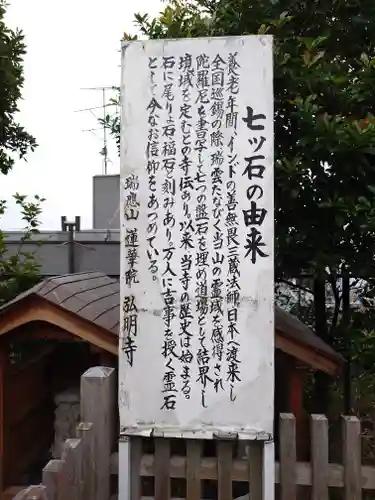 七ッ石の由来
養老年間、インドの善無畏三蔵法師、日本へ渡来し
全国巡錫の際、瑞雲たなびく当山の霊域を感得され
陀羅尼を書写し七つの盤石を埋め道場として結界し
境域を定むとの寺伝あり。以来、当寺の歴史は始まる。
石に尾り上石福石と刻みあり。万人に吉事を授く霊石
として今なお信仰をあつめている。
瑞應山 蓮華院 弘明寺